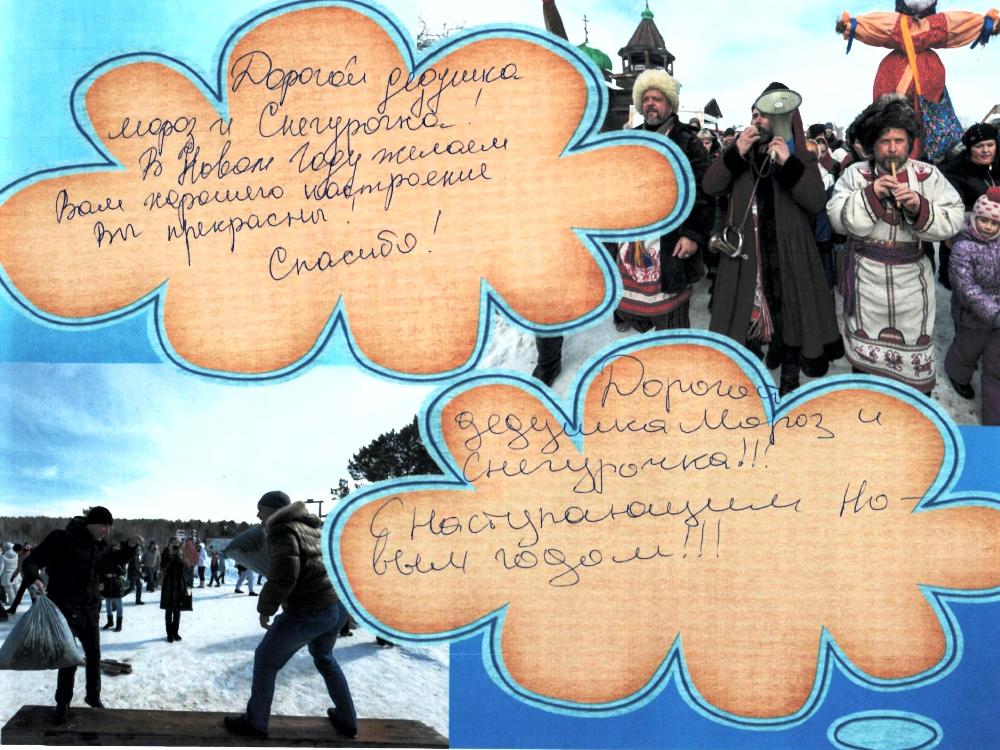 Дорогой дедушка
мороз и Снегурочка!
В Новом Году желаем
Вам хорошего настроение
Вы прекрасны!
Спасибо!
Дорогой
дедушка Мороз и
Снегурочка!!!
С Наступающим Но-
вым годом!!!